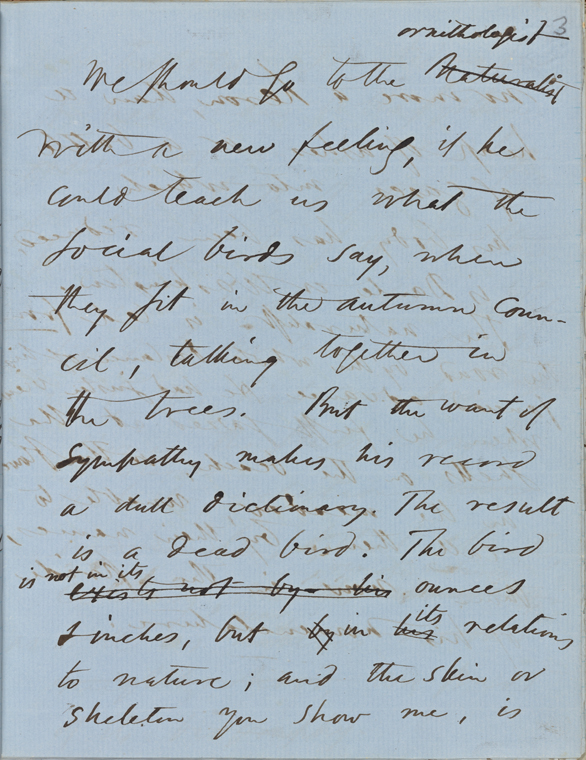 ornithologist 3
We should go to the Naturalist
with a new feeling, if he
could teach us what the
social birds say, when
they sit in the autumn coun-
cil, talking together in
the trees. But the want of
sympathy makes his record
a dull dictionary. The result
is a dead bird. The bird
is not in its
exists not by his ounces
& inches, but by in his relations
its
to nature; and the skin or
skeleton you show me, is